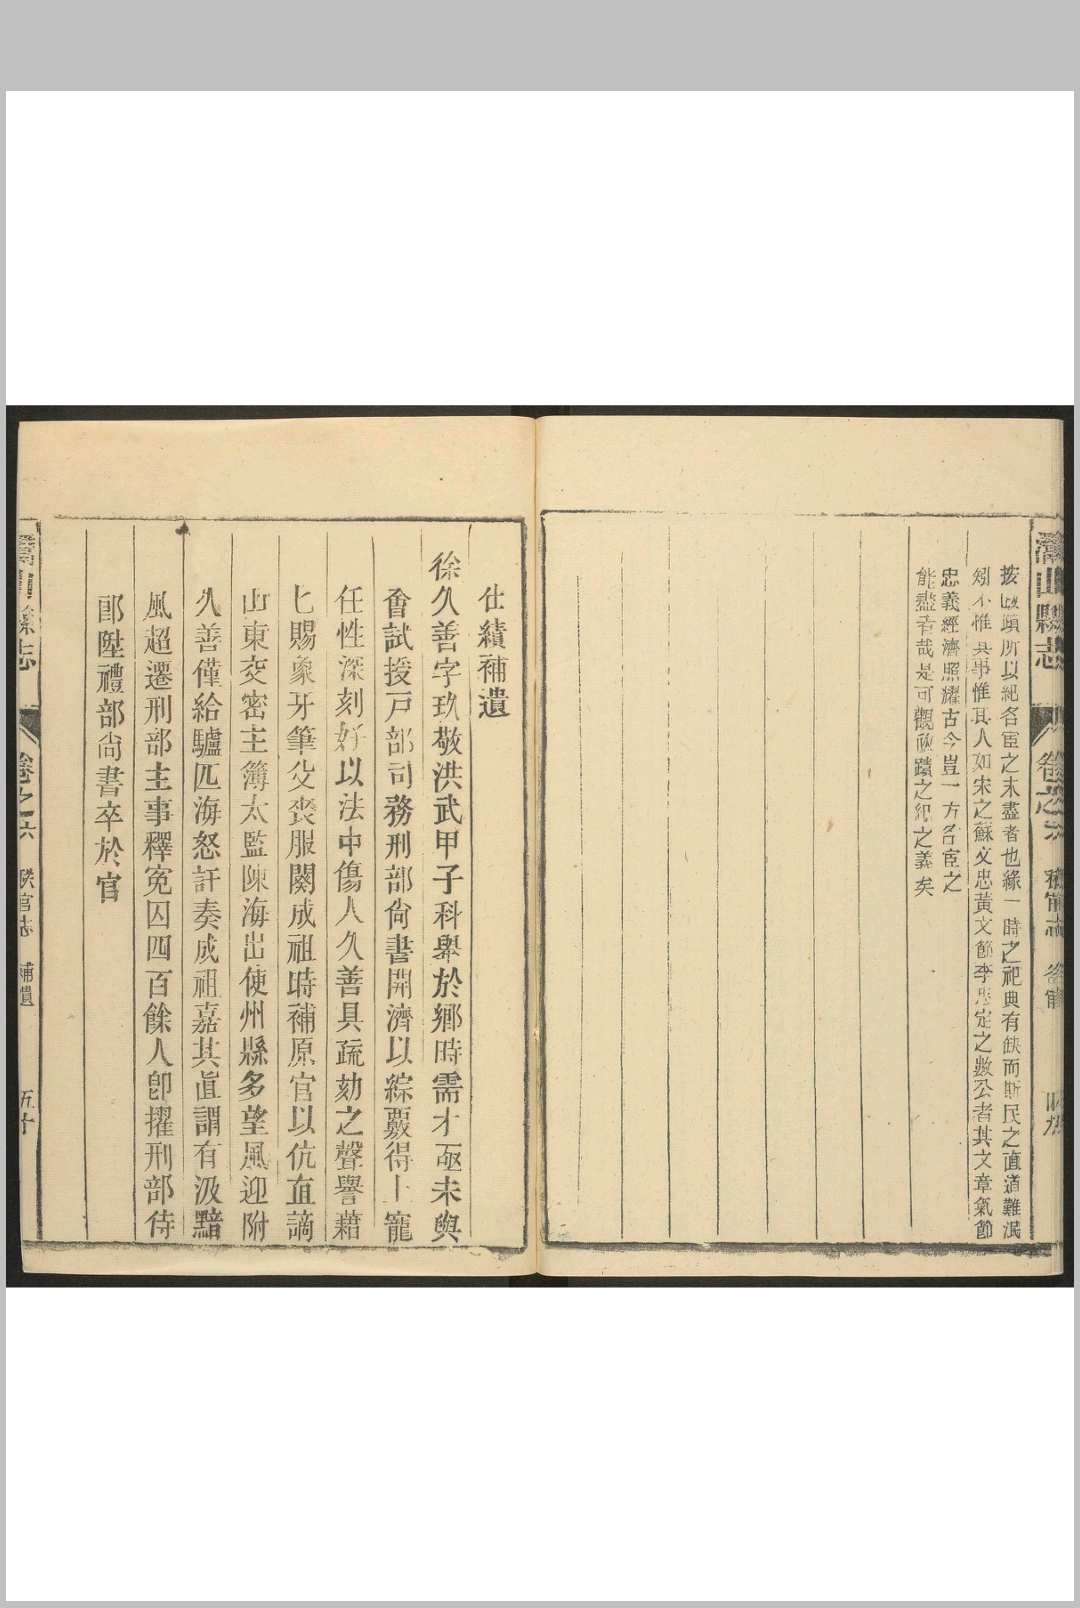 志
按以頌所以紀名宦之未盡者也緣一時之祀典有缺而斯民之直道難泯
不惟其事惟其人如宋之蘇文忠黃文節李忠定之數公者其文章氣節
忠義經濟照耀古今豈一方名宦之
能盡者哉是可觀蹟之紀之義矣
仕績補遺
徐久善字玖敬洪武甲子科舉於鄉時需才亟未與
會試授戸部司務刑部尚書開濟以綜覈得上寵
任性深刻好以法中傷人久善具疏劾之聲譽藉
七賜象牙筆父喪服闋成祖時補原官以伉直謫
山東交密主簿太監陳海出使州縣多望風迎附
久善僅給驢匹海怒訐奏成祖嘉其直謂有汲黯
風超遷刑部主事釋冤囚四百餘人卽擢刑部侍
郎陞禮部尚書卒於官
縣志
卷之六
官志
補遺
五十